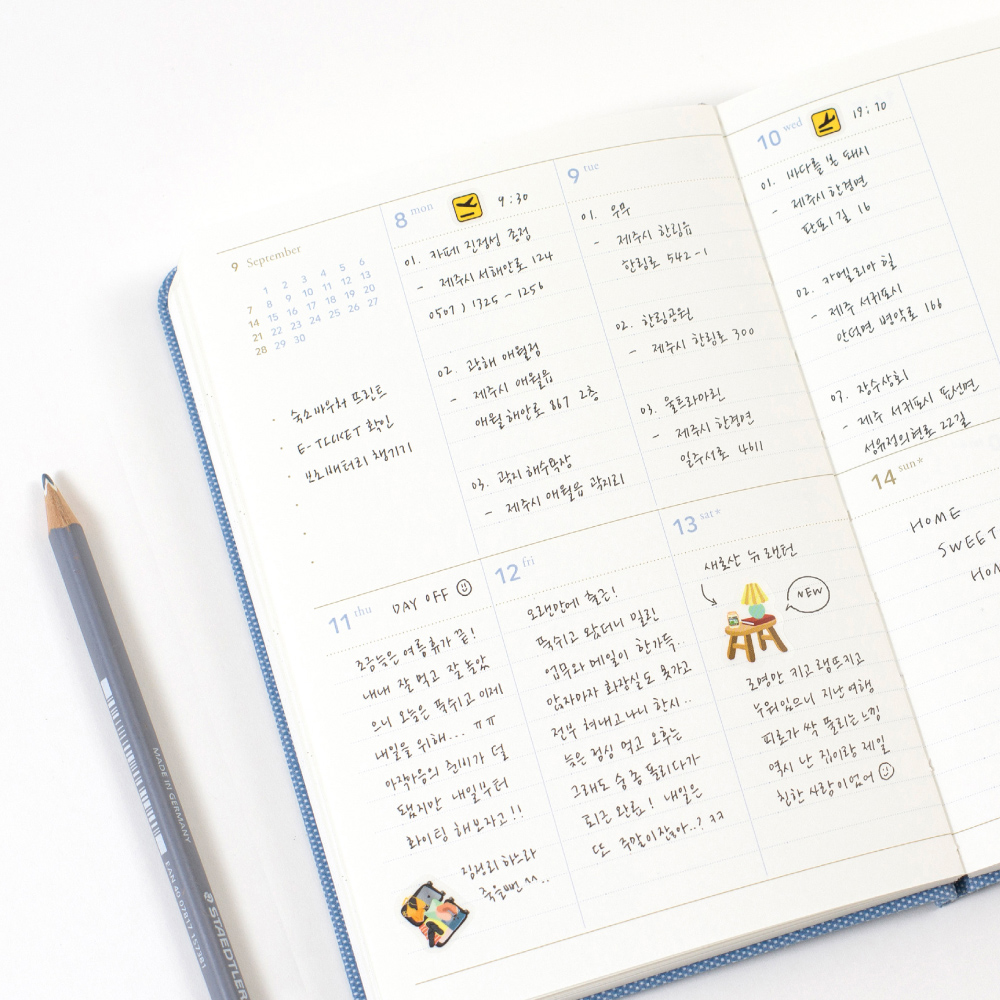 9 September
1 2 3 4 5 6
7 8 9 10 11 12 13
14 15 16 17 18 19 20
21 22 23 24 25 26 27
28 29 30
· 숙소바우처 프린트
· E-TICKET 확인
· 보조배터리 챙기기
·
·
·
8 mon 9:30
01. 카페 진정성 종점
- 제주시 서해안로 124
0507) 1325-1256
02. 광해 애월점
- 제주시 애월읍
애월해안로 867 2층
03. 곽지 해수욕장
- 제주시 애월읍 곽지리
9 tue
01. 우무
- 제주시 한림읍
한림로 542-1
02. 한림공원
- 제주시 한림로 300
03. 울트라마린
- 제주시 한경면
일주서로 4611
10 wed 19:10
01. 바다를 본 돼지
- 제주시 한경면
판포1길 16
02. 카멜리아 힐
- 제주 서귀포시
안덕면 병악로 166
03. 장수상회
- 제주 서귀포시 표선면
성읍정의현로 22길
11 thu DAY OFF
조금 늦은 여름휴가 끝!
내내 잘 먹고 잘 놀았
으니 오늘은 푹쉬고 이제
내일을 위해... ㅠㅠ
아직 마음의 준비가 덜
됐지만 내일부터
화이팅 해보자고!!
짐정리 하느라
죽을뻔 ^^..
12 fri
오랜만에 출근!
푹쉬고 왔더니 밀린
업무와 메일이 한가득..
앉자마자 화장실도 못가고
전부 쳐내고나니 한시..
늦은 점심 먹고 오후는
그래도 숨 좀 돌리다가
퇴근 완료! 내일은
또 주말이잖아..? ㅋㅋ
13 sat*
새로산 뉴 램턴
NEW
조명만 키고 램프지고
누워있으니 지난 여행
피로가 싹 풀리는 느낌
역시 난 집이랑 제일
친한 사람이었어
14 sun*
HOME
SWEET
HOM
MADE IN GERMANY
EAN 40 07817 157381
STAEDTLER